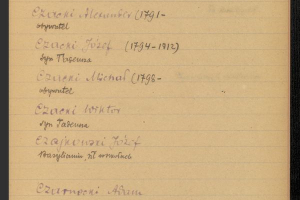 Czacki Alexander (1791-
obywatel
Czacki Józef (1794-1812)
syn Tadeusza
Czacki Michał (1798-
obywatel
Czacki Wiktor
syn Tadeusza
Czajkowski Józef
Bazylianin,
Czarnocki Adam